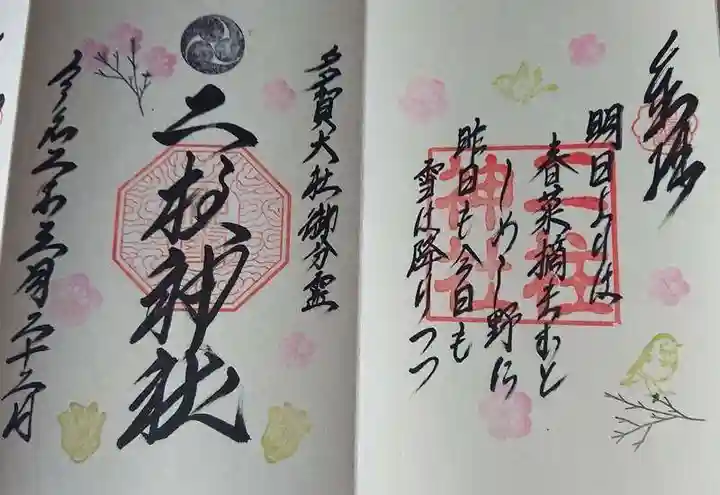 奉拝
明日よりは
春菜摘まむと
しめし野に
昨日も今日も
雪は降りつつ
二柱
神社
多賀大社御分霊
二柱神社
令和三年三月二十三日